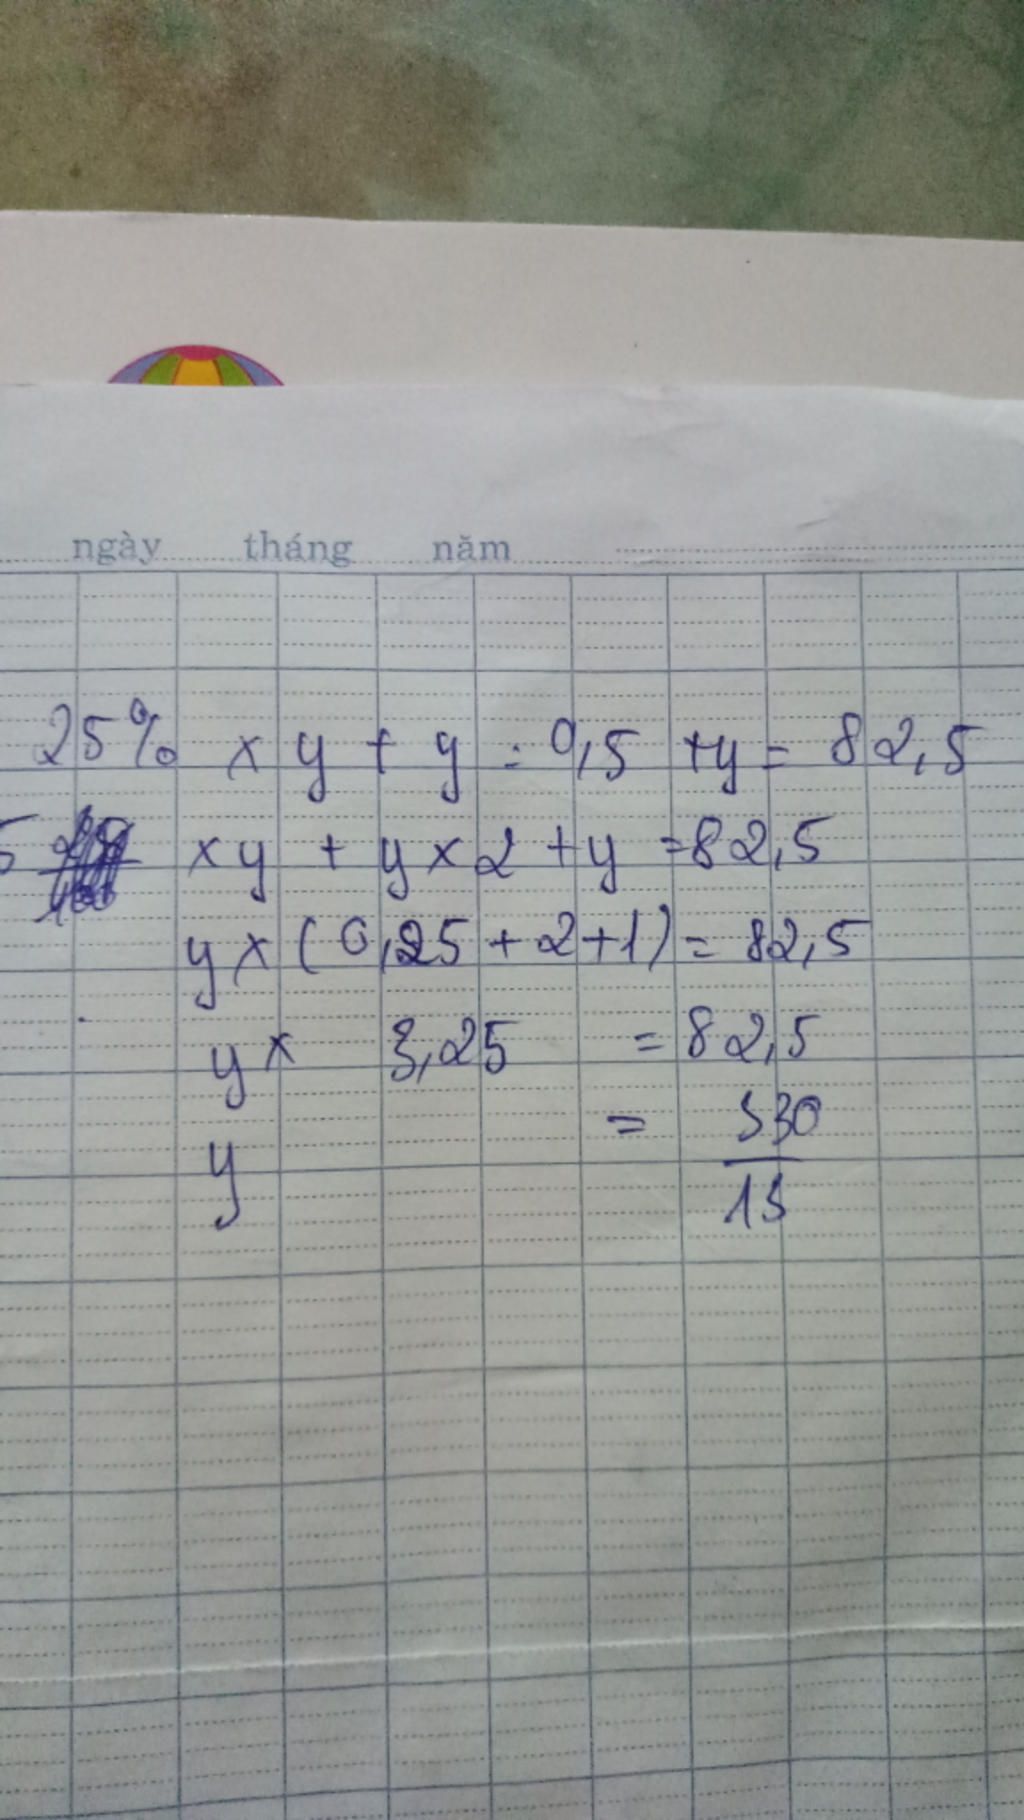 ngày tháng năm
25% x y + y : 0,5 + y = 82,5
5 x y + y x 2 + y = 82,5
y x (0,25 + 2 + 1) = 82,5
y x 3,25 = 82,5
y = 330/13